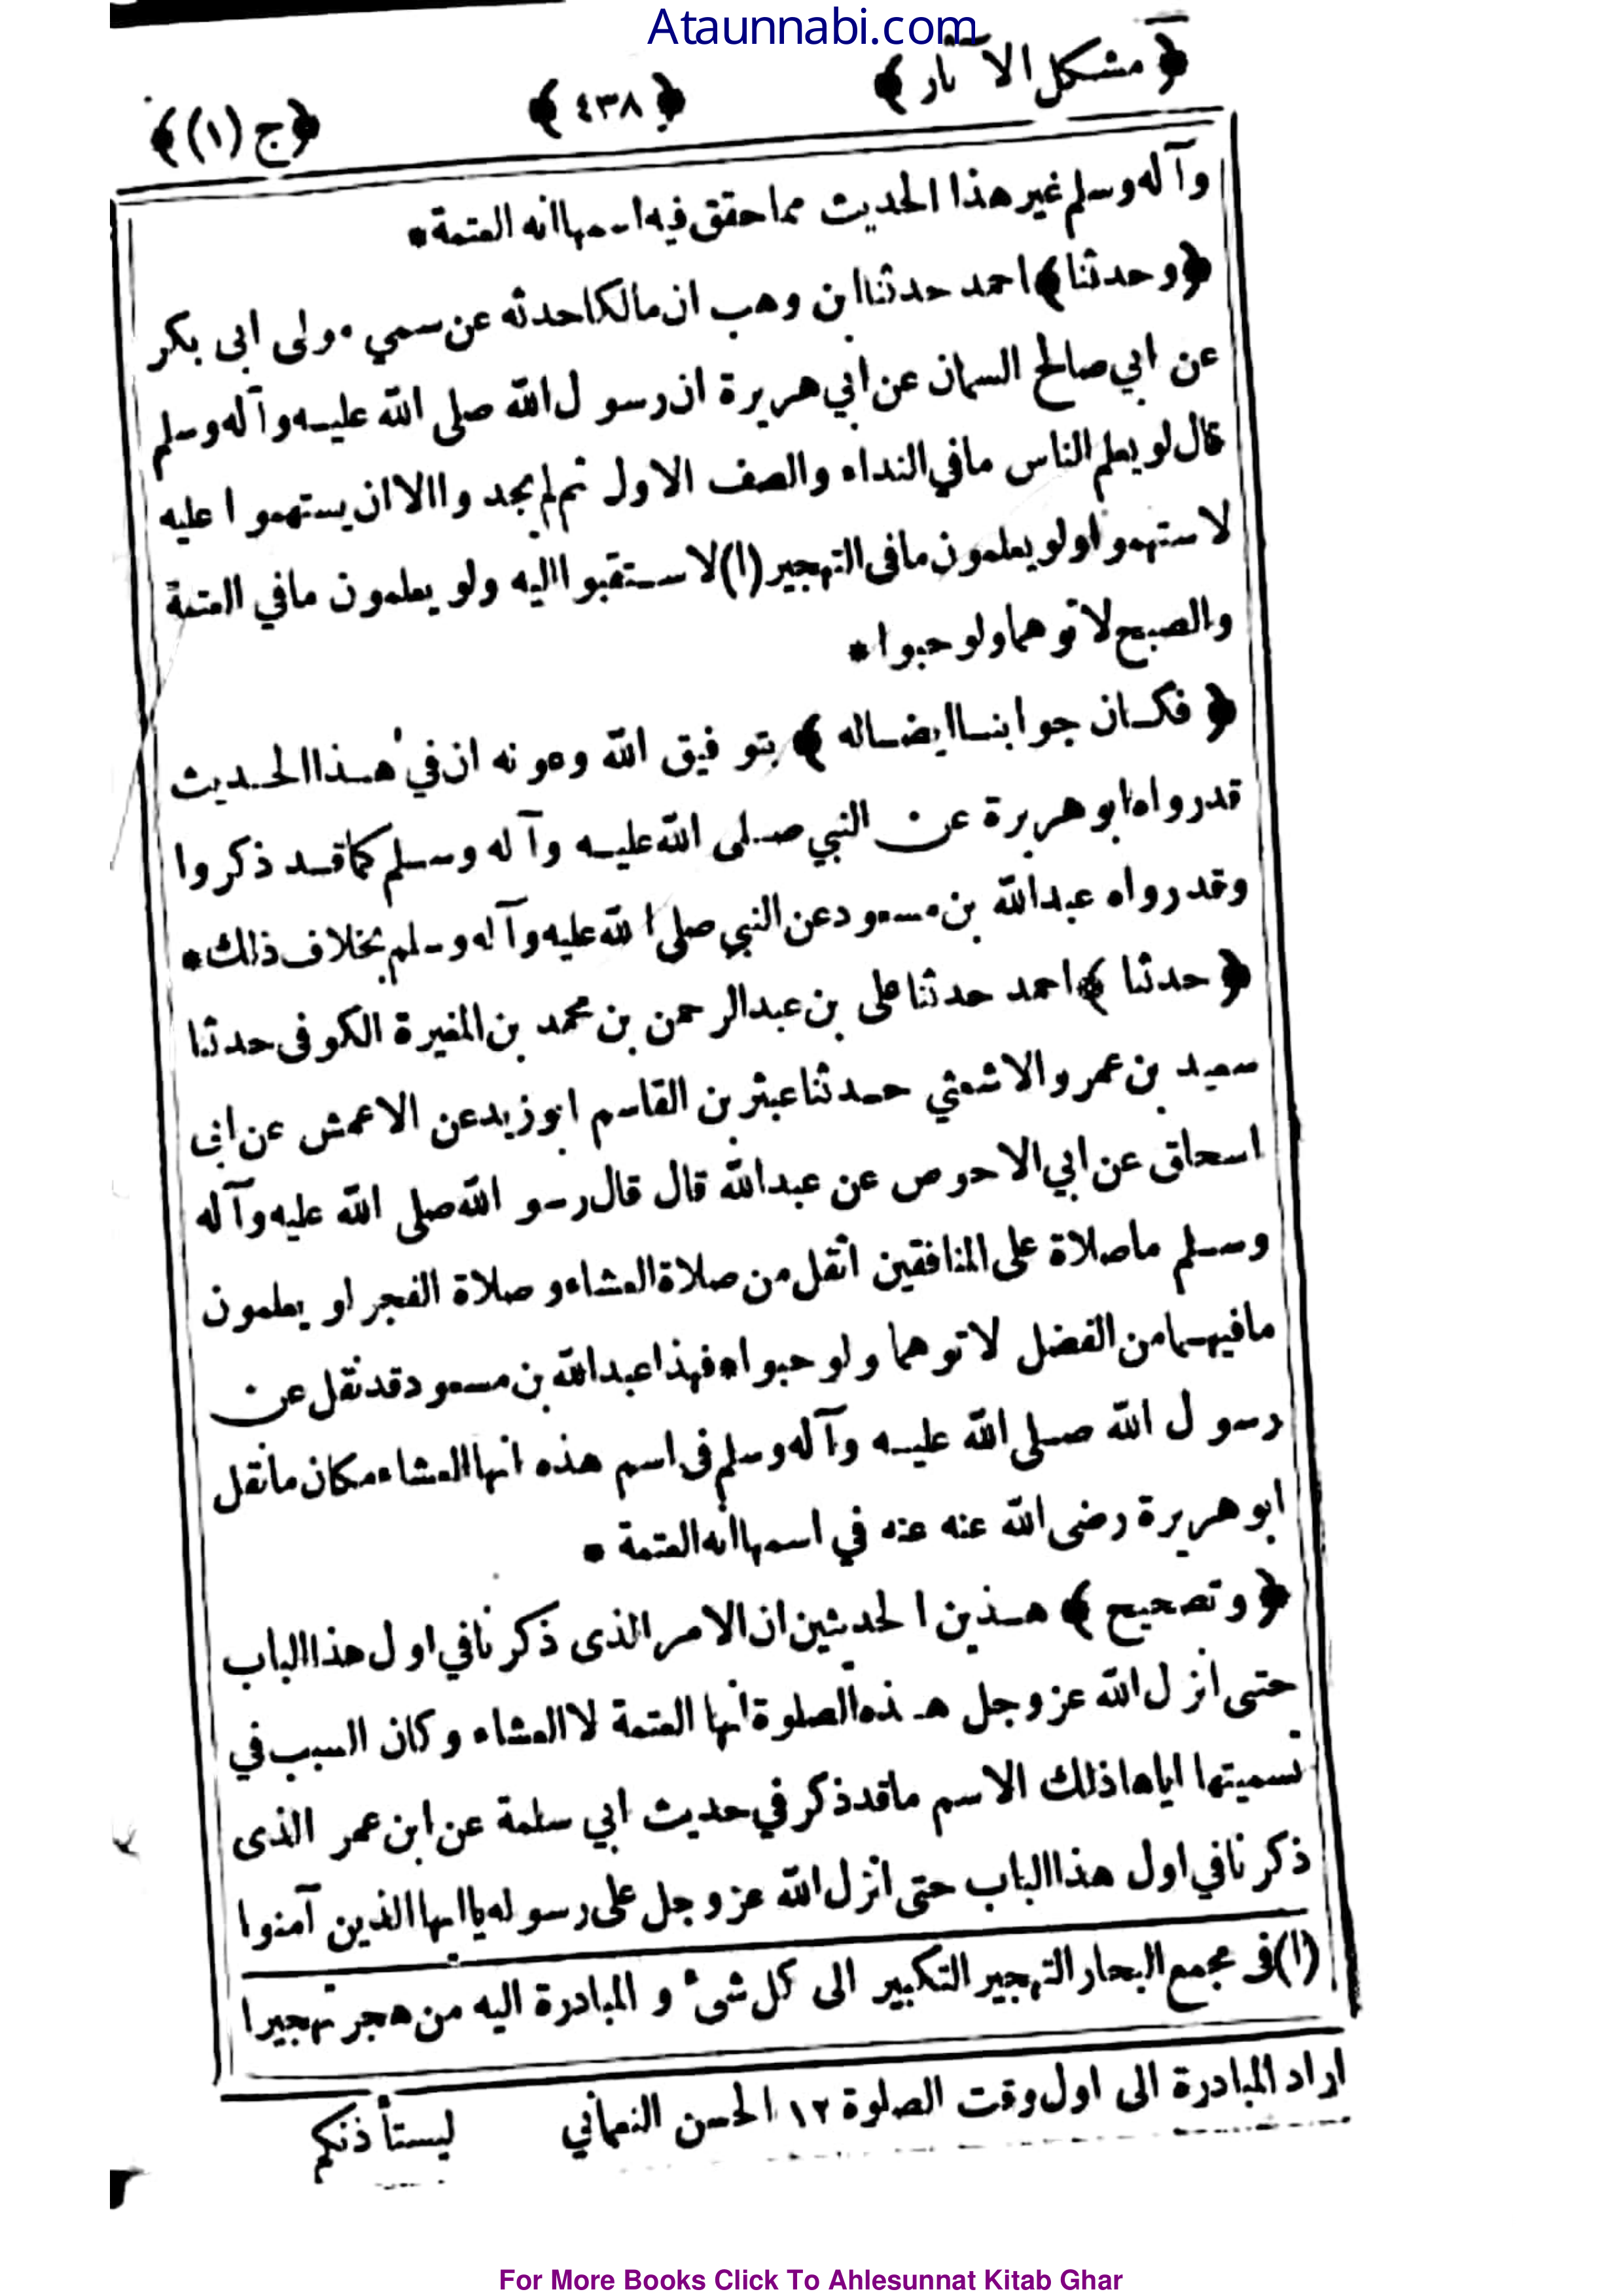 Ataunnabi.com
﴿مشكل الآثار﴾ ﴿٤٣٨﴾ ﴿ج (١)﴾
وآله وسلم غير هذا الحديث مما حقق فيه اسمها انه العتمة *
﴿وحدثنا﴾ احمد حدثنا ابن وهب ان مالكا حدثه عن سمي مولى ابى بكر
عن ابي صالح السمان عن ابي هريرة ان رسول الله صلى الله عليه وآله وسلم
قال لو يعلم الناس مافي النداء والصف الاول ثم لم يجدوا الا ان يستهموا عليه
لاستهموا ولو يعلمون مافى التهجير (١) لاستقبوا اليه ولو يعلمون مافي العتمة
والصبح لاتوهما ولو حبوا *
﴿فكان جوابنا ايضا له﴾ بتوفيق الله وعونه ان في هذا الحديث
قد رواه ابو هريرة عن النبي صلى الله عليه وآله وسلم كما قد ذكروا
وقد رواه عبد الله بن مسعود عن النبي صلى الله عليه وآله وسلم بخلاف ذلك *
﴿حدثنا﴾ احمد حدثنا على بن عبد الرحمن بن محمد بن المغيرة الكوفى حدثنا
سعيد بن عمرو الاشعثي حدثنا عبثر بن القاسم ابو زيد عن الاعمش عن ابى
اسحاق عن ابي الاحوص عن عبد الله قال قال رسو الله صلى الله عليه وآله
وسلم ما صلاة على المنافقين اثقل من صلاة العشاء و صلاة الفجر او يعلمون
مافيهما من الفضل لاتوهما ولو حبوا * فهذا عبد الله بن مسعود قد نقل عن
رسول الله صلى الله عليه وآله وسلم فى اسم هذه انها العشاء مكان ما نقل
ابو هريرة رضى الله عنه عنه في اسمها انه العتمة *
﴿وتصحيح﴾ هذين الحديثين ان الامر الذى ذكرنا في اول هذا الباب
حتى انزل الله عز وجل هذه الصلوة انها العتمة لا العشاء وكان السبب في
تسميتها اياها ذلك الاسم ما قد ذكر في حديث ابي سلمة عن ابن عمر الذى
ذكرنا في اول هذا الباب حتى انزل الله عز وجل على رسوله يا ايها الذين آمنوا
(١) فى مجمع البحار التهجير التكبير الى كل شىء و المبادرة اليه من هجر تهجيرا
اراد المبادرة الى اول وقت الصلوة ١٢ الحسن النعماني ليستأذنكم
For More Books Click To Ahlesunnat Kitab Ghar